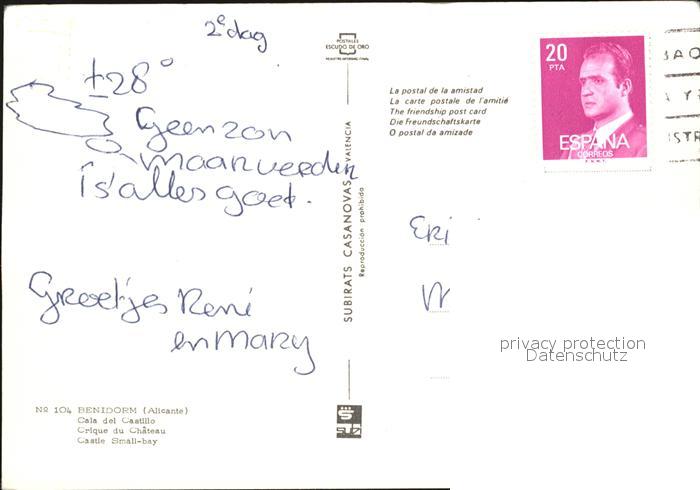 2e dag
±28°
Geen zon
maar verder
is 'alles goet.
Groetjes René
en Mary
Nº 104 BENIDORM (Alicante)
Cala del Castillo
Crique du Château
Castle Small-bay
POSTALES
ESCUDO DE ORO
SUBIRATS CASANOVAS VALENCIA
Reproducción prohibida
La postal de la amistad
La carte postale de l'amitié
The friendship post card
Die Freundschaftskarte
O postal da amizade
20
PTA
ESPAÑA
CORREOS
F.N.M.T.
Eri
privacy protection
Datenschutz